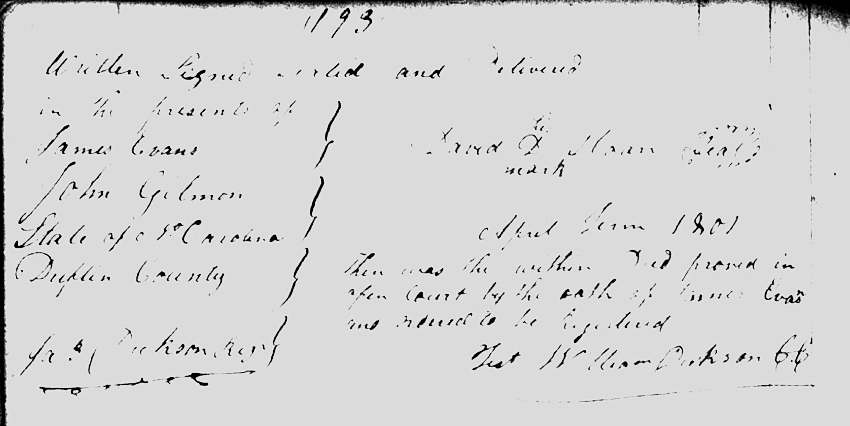 193
Written Signed Sealed and Delivered
in the presents of
James Evans
John Gilmon
State of No Carolina
Duplin County
Jas Dickson Regr
his
David D Sloan Seal
mark
April Term 1801
Then was the within Deed proved in
open Court by the oath of James Evans
and ordered to be Registered
Test William Dickson CC